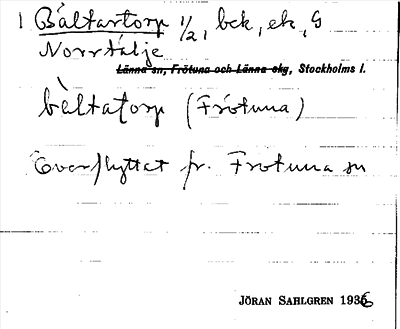 1 Bältartorp 1/2, bck, ek, S
Norrtälje
Länna sn, Frötuna och Länna skg, Stockholms l.
bèltatorp (Frötuna)
Överflyttat fr. Frötuna sn
JÖRAN SAHLGREN 1936